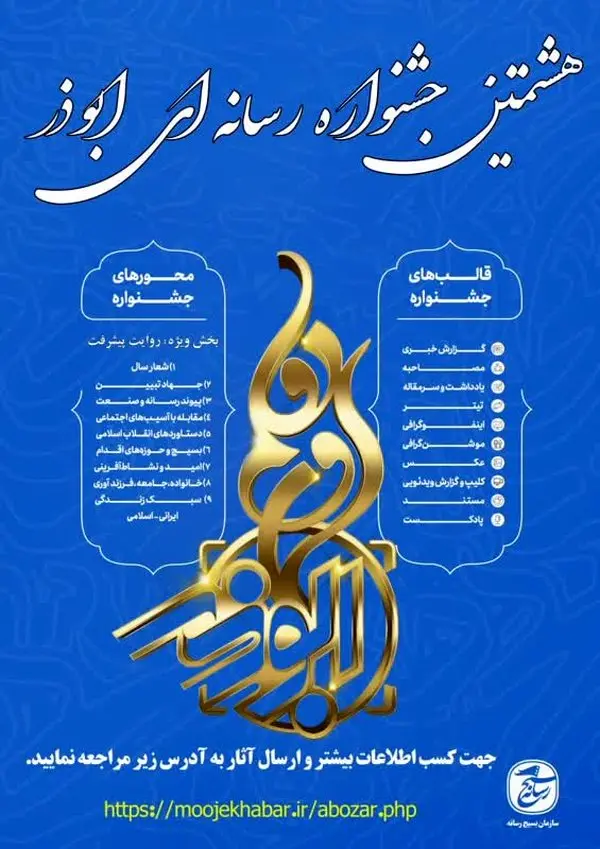 هشتمین جشنواره رسانه ای ابوذر
قالب‌های
جشنواره
گزارش خبری
مصاحبه
یادداشت و سرمقاله
تیتر
اینفوگرافی
موشن‌گرافی
عکس
کلیپ و گزارش ویدئویی
مستند
پادکست
محورهای
جشنواره
بخش ویژه: روایت پیشرفت
۱) شعار سال
۲) جهاد تبیین
۳) پیوند رسانه و صنعت
۴) مقابله با آسیب‌های اجتماعی
۵) دستاوردهای انقلاب اسلامی
۶) بسیج و حوزه‌های اقدام
۷) امید و نشاط‌آفرینی
۸) خانواده، جامعه، فرزندآوری
۹) سبک زندگی
ایرانی-اسلامی
ابوذر
جهت کسب اطلاعات بیشتر و ارسال آثار به آدرس زیر مراجعه نمایید.
https://moojekhabar.ir/abozar.php
بسیج رسانه
سازمان بسیج رسانه